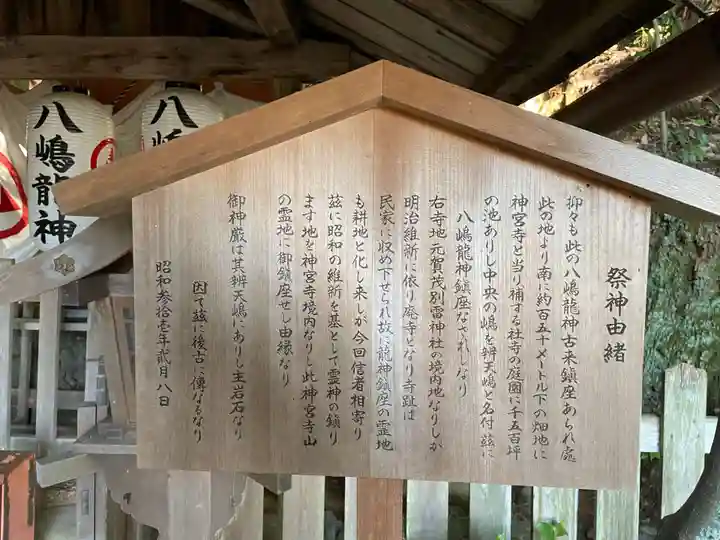 祭神由緒
抑々も此の八嶋龍神古来鎮座あられ處
此の地より南に約百五十メートル下の畑地に
神宮寺と当り補する社寺の庭園に千五百坪
の池ありし中央の嶋を辨天嶋と名付茲に
八嶋龍神鎮座なされしなり
右寺地元賀茂別雷神社の境内地なりしが
明治維新に依り廃寺となり寺趾は
民家に収め下せられ故に龍神鎮座の霊地
も耕地と化し来しが今回信者相寄り
茲に昭和の維新を基として霊神の鎮り
ます地を神宮寺境内なりし此神宮寺山
の霊地に御鎮座せし由縁なり
御神厳は其辨天嶋にありし主岩石なり
因て茲に後古に傳なるなり
昭和参拾壱年弐月八日
八嶋龍神
八嶋